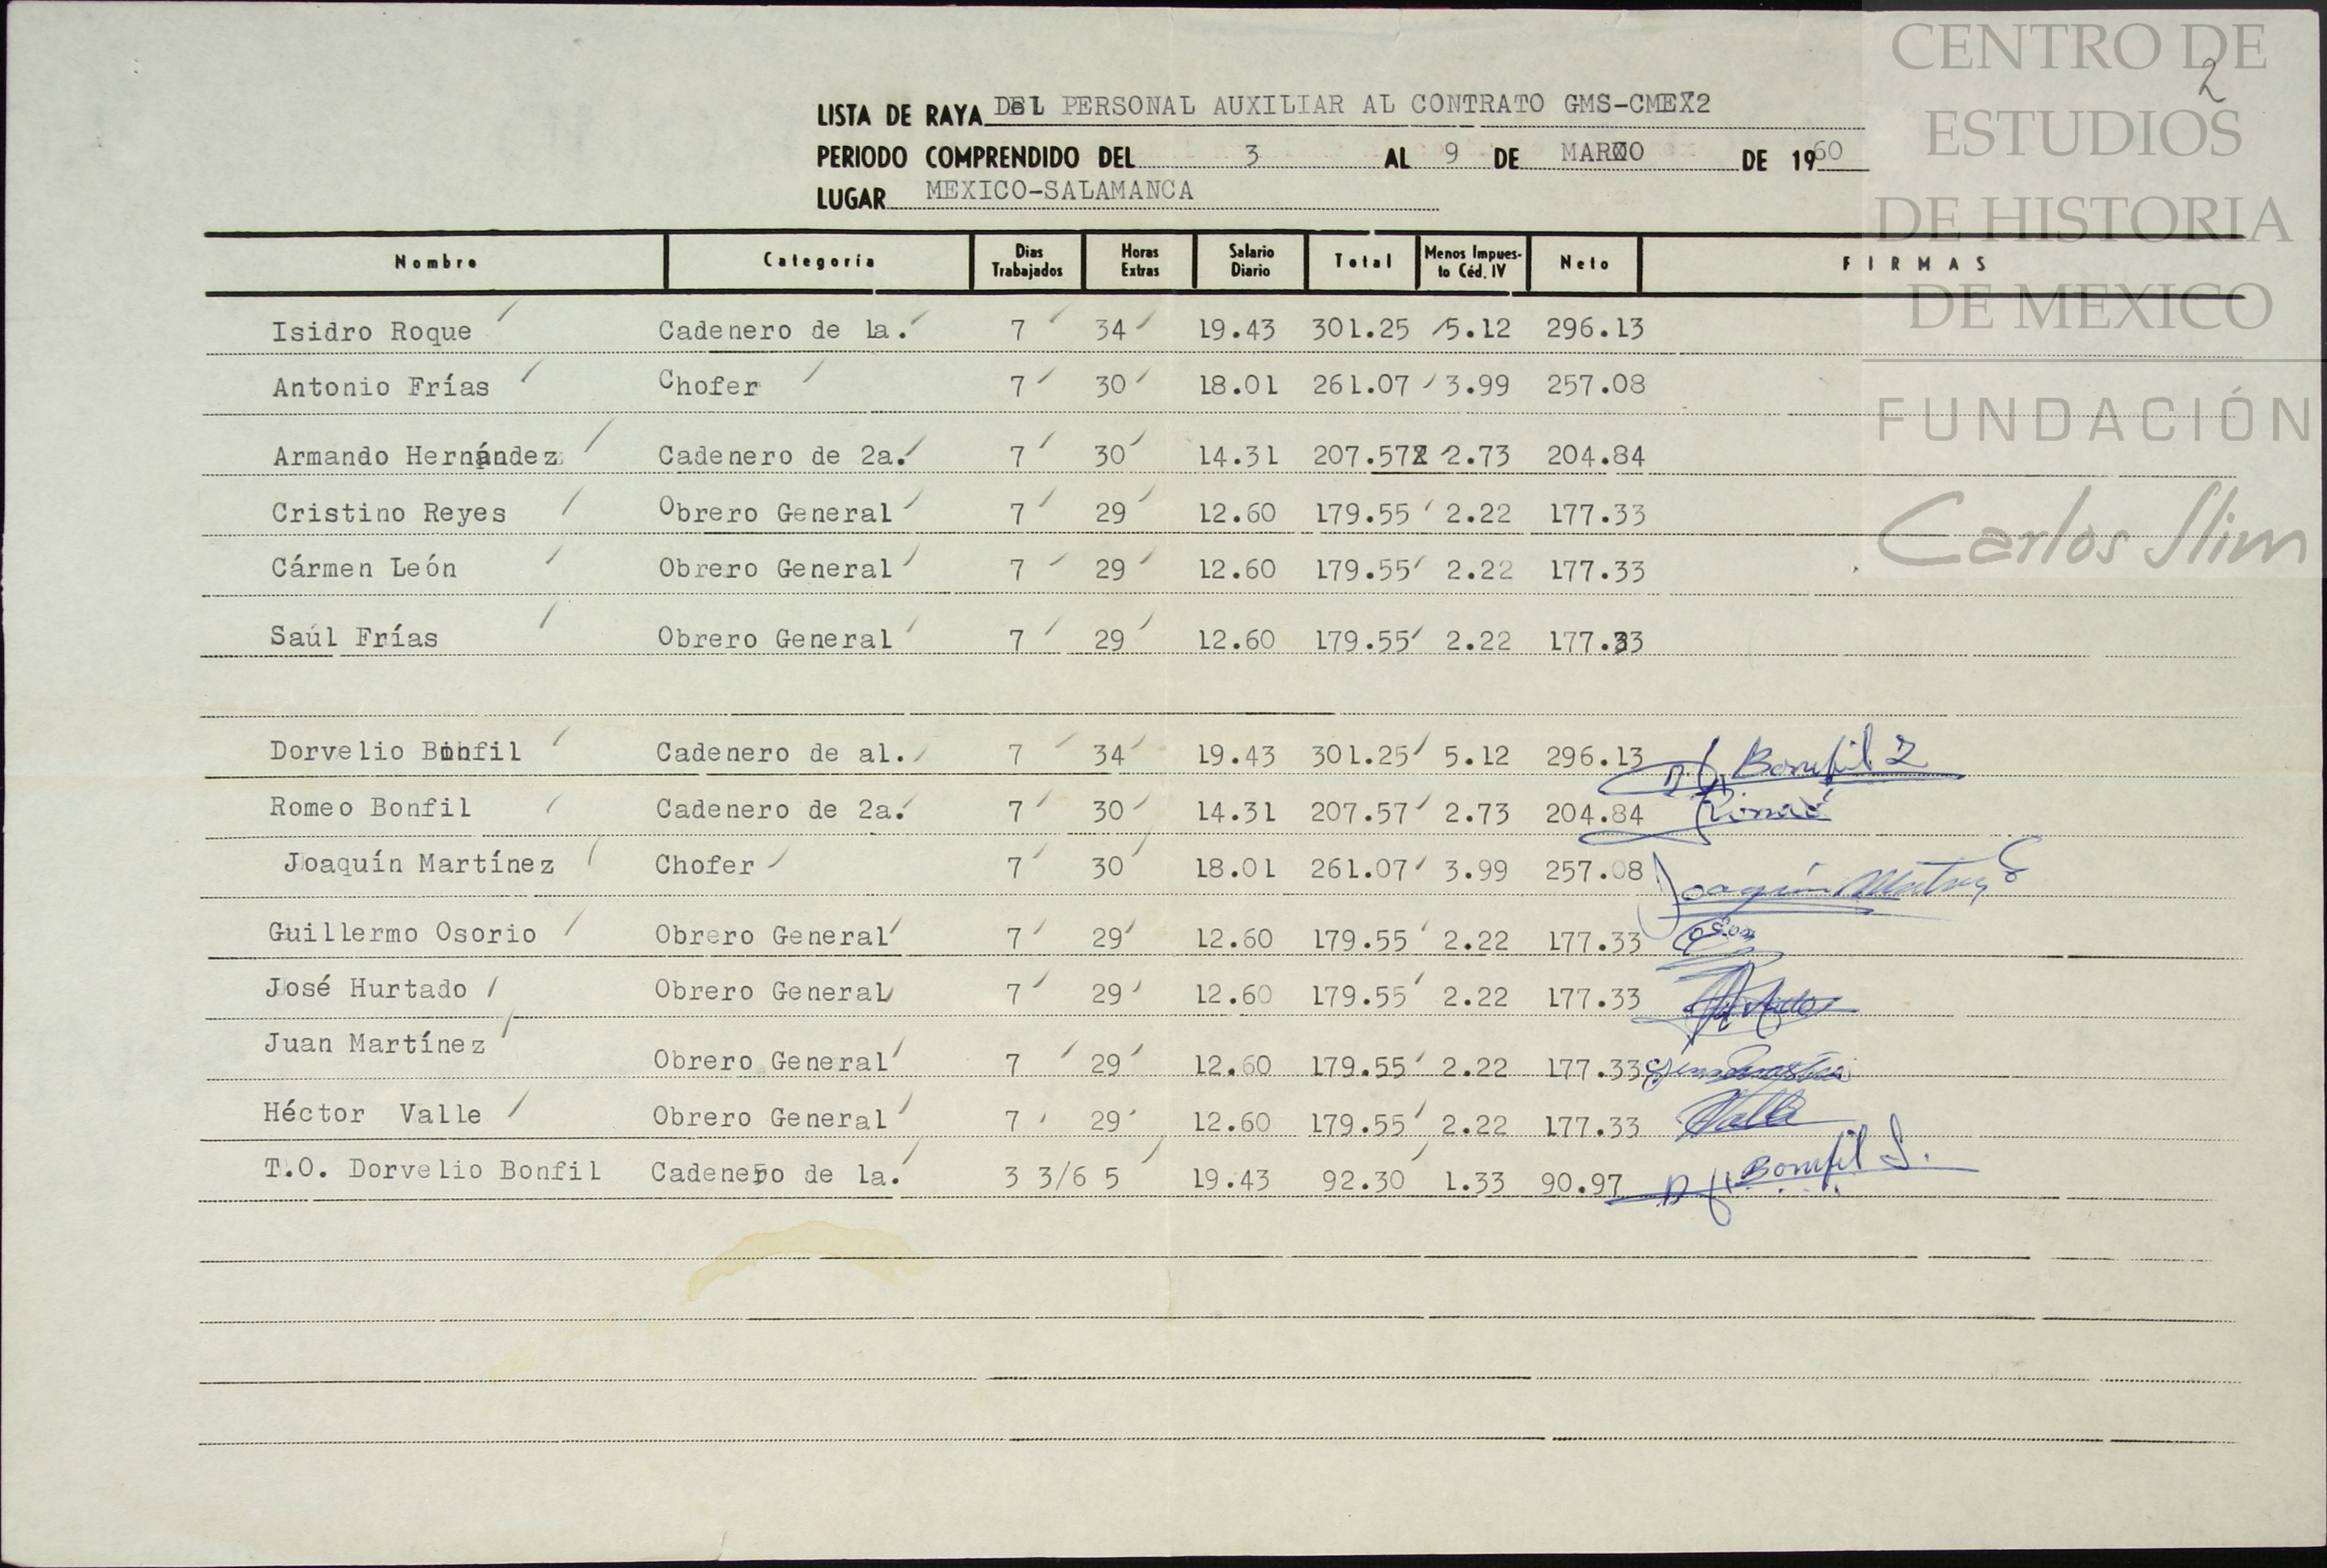 2
LISTA DE RAYA DEL PERSONAL AUXILIAR AL CONTRATO GMS-CMEX2
PERIODO COMPRENDIDO DEL 3 AL 9 DE MARZO DE 1960
LUGAR MEXICO-SALAMANCA
Nombre Categoría Dias Trabajados Horas Extras Salario Diario Total Menos Impues-to Céd. IV Neto FIRMAS
Isidro Roque Cadenero de 1a. 7 34 19.43 301.25 5.12 296.13
Antonio Frías Chofer 7 30 18.01 261.07 3.99 257.08
Armando Hernández Cadenero de 2a. 7 30 14.31 207.57 2.73 204.84
Cristino Reyes Obrero General 7 29 12.60 179.55 2.22 177.33
Cármen León Obrero General 7 29 12.60 179.55 2.22 177.33
Saúl Frías Obrero General 7 29 12.60 179.55 2.22 177.33
Dorvelio Bonfil Cadenero de al. 7 34 19.43 301.25 5.12 296.13 Bonfil
Romeo Bonfil Cadenero de 2a. 7 30 14.31 207.57 2.73 204.84 Romeo
Joaquín Martínez Chofer 7 30 18.01 261.07 3.99 257.08 Joaquín Martínez
Guillermo Osorio Obrero General 7 29 12.60 179.55 2.22 177.33
José Hurtado Obrero General 7 29 12.60 179.55 2.22 177.33 Hurtado
Juan Martínez Obrero General 7 29 12.60 179.55 2.22 177.33
Héctor Valle Obrero General 7 29 12.60 179.55 2.22 177.33 Valle
T.O. Dorvelio Bonfil Cadenero de 1a. 3 3/6 5 19.43 92.30 1.33 90.97 Bonfil
CENTRO DE
ESTUDIOS
DE HISTORIA
DE MEXICO
FUNDACIÓN
Carlos Slim